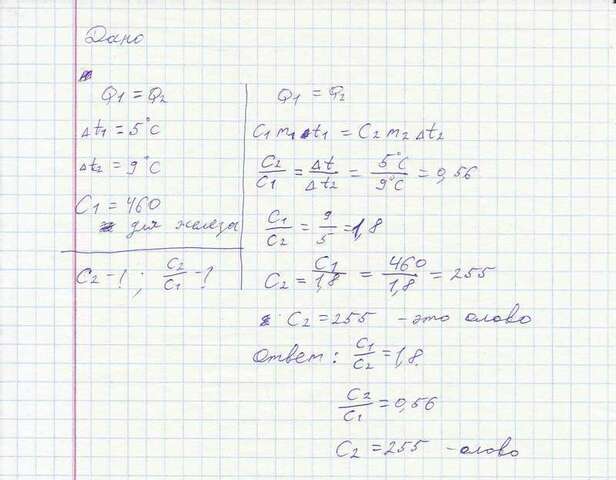 Дано
Q1 = Q2
Δt1 = 5°C
Δt2 = 9°C
C1 = 460
для железа
C2 - ? ; C2/C1 - ?
Q1 = Q2
C1 m1 Δt1 = C2 m2 Δt2
C2/C1 = Δt/Δt2 = 5°C/9°C = 0,56
C1/C2 = 9/5 = 1,8
C2 = C1/1,8 = 460/1,8 = 255
C2 = 255 - это олово
Ответ: C1/C2 = 1,8.
C2/C1 = 0,56
C2 = 255 - олово